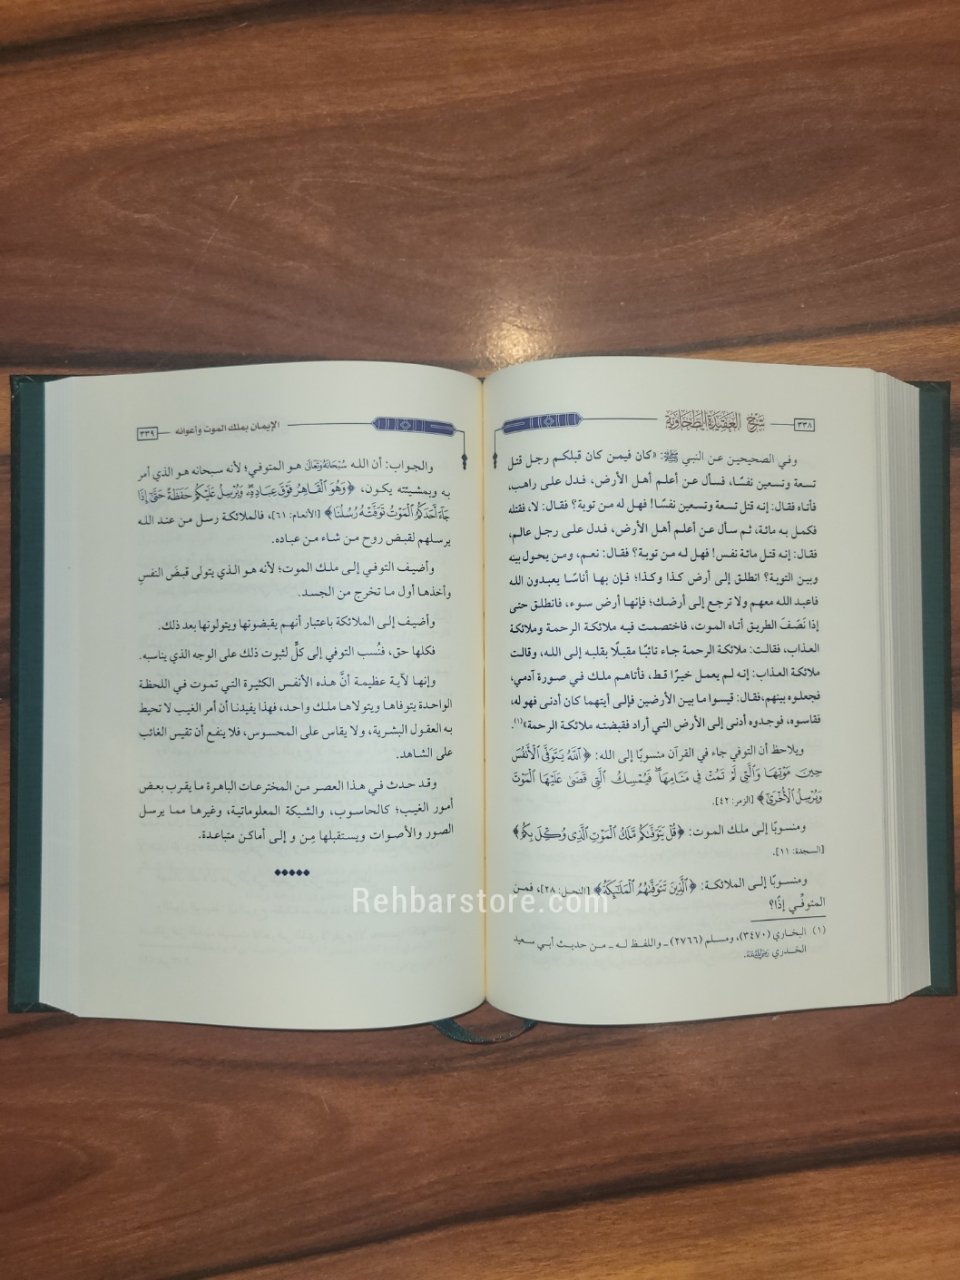 ٣٣٨
شرح العقيدة الطحاوية
وفي الصحيحين عن النبي ﷺ: «كان فيمن كان قبلكم رجل قتل
تسعة وتسعين نفسًا، فسأل عن أعلم أهل الأرض، فدل على راهب،
فأتاه فقال: إنه قتل تسعة وتسعين نفسًا! فهل له من توبة؟ فقال: لا، فقتله
فكمل به مائة، ثم سأل عن أعلم أهل الأرض، فدل على رجل عالم،
فقال: إنه قتل مائة نفس! فهل له من توبة؟ فقال: نعم، ومن يحول بينه
وبين التوبة؟ انطلق إلى أرض كذا وكذا؛ فإن بها أناسًا يعبدون الله
فاعبد الله معهم ولا ترجع إلى أرضك؛ فإنها أرض سوء، فانطلق حتى
إذا نَصَفَ الطريق أتاه الموت، فاختصمت فيه ملائكة الرحمة وملائكة
العذاب، فقالت: ملائكة الرحمة جاء تائبًا مقبلًا بقلبه إلى الله، وقالت
ملائكة العذاب: إنه لم يعمل خيرًا قط، فأتاهم ملك في صورة آدمي،
فجعلوه بينهم،فقال: قيسوا ما بين الأرضين فإلى أيتهما كان أدنى فهو له،
فقاسوه، فوجدوه أدنى إلى الأرض التي أراد فقبضته ملائكة الرحمة»(١).
ويلاحظ أن التوفي جاء في القرآن منسوبًا إلى الله: ﴿ٱللَّهُ يَتَوَفَّى ٱلۡأَنفُسَ
حِينَ مَوۡتِهَا وَٱلَّتِي لَمۡ تَمُتۡ فِي مَنَامِهَاۖ فَيُمۡسِكُ ٱلَّتِي قَضَىٰ عَلَيۡهَا ٱلۡمَوۡتَ
وَيُرۡسِلُ ٱلۡأُخۡرَىٰٓ﴾ [الزمر: ٤٢].
ومنسوبًا إلى ملك الموت: ﴿قُلۡ يَتَوَفَّىٰكُم مَّلَكُ ٱلۡمَوۡتِ ٱلَّذِي وُكِّلَ بِكُمۡ﴾
[السجدة: ١١].
ومنسوبًا إلى الملائكة: ﴿ٱلَّذِينَ تَتَوَفَّىٰهُمُ ٱلۡمَلَٰٓئِكَةُ﴾ [النحل: ٢٨]، فمن
المتوفِّي إذًا؟
(١) البخاري (٣٤٧٠)، ومسلم (٢٧٦٦) ـ واللفظ له ـ من حديث أبي سعيد
الخدري رضي الله عنه.
الإيمان بملك الموت وأعوانه
٣٣٩
والجواب: أن الله سُبْحَانَهُ وَتَعَالَى هو المتوفي؛ لأنه سبحانه هو الذي أمر
به وبمشيئته يكون، ﴿وَهُوَ ٱلۡقَاهِرُ فَوۡقَ عِبَادِهِۦۖ وَيُرۡسِلُ عَلَيۡكُمۡ حَفَظَةً حَتَّىٰٓ إِذَا
جَآءَ أَحَدَكُمُ ٱلۡمَوۡتُ تَوَفَّتۡهُ رُسُلُنَا﴾ [الأنعام: ٦١]، فالملائكة رسل من عند الله
يرسلهم لقبض روح من شاء من عباده.
وأضيف التوفي إلى ملك الموت؛ لأنه هو الذي يتولى قبضَ النفسِ
وأخذها أول ما تخرج من الجسد.
وأضيف إلى الملائكة باعتبار أنهم يقبضونها ويتولونها بعد ذلك.
فكلها حق، فنُسب التوفي إلى كلٍّ لثبوت ذلك على الوجه الذي يناسبه.
وإنها لآية عظيمة أنَّ هذه الأنفس الكثيرة التي تموت في اللحظة
الواحدة يتوفاها ويتولاها ملك واحد، فهذا يفيدنا أن أمر الغيب لا تحيط
به العقول البشرية، ولا يقاس على المحسوس، فلا ينفع أن تقيس الغائب
على الشاهد.
وقد حدث في هذا العصر من المخترعات الباهرة ما يقرب بعض
أمور الغيب؛ كالحاسوب، والشبكة المعلوماتية، وغيرها مما يرسل
الصور والأصوات ويستقبلها مِن و إلى أماكن متباعدة.
Rehbarstore.com